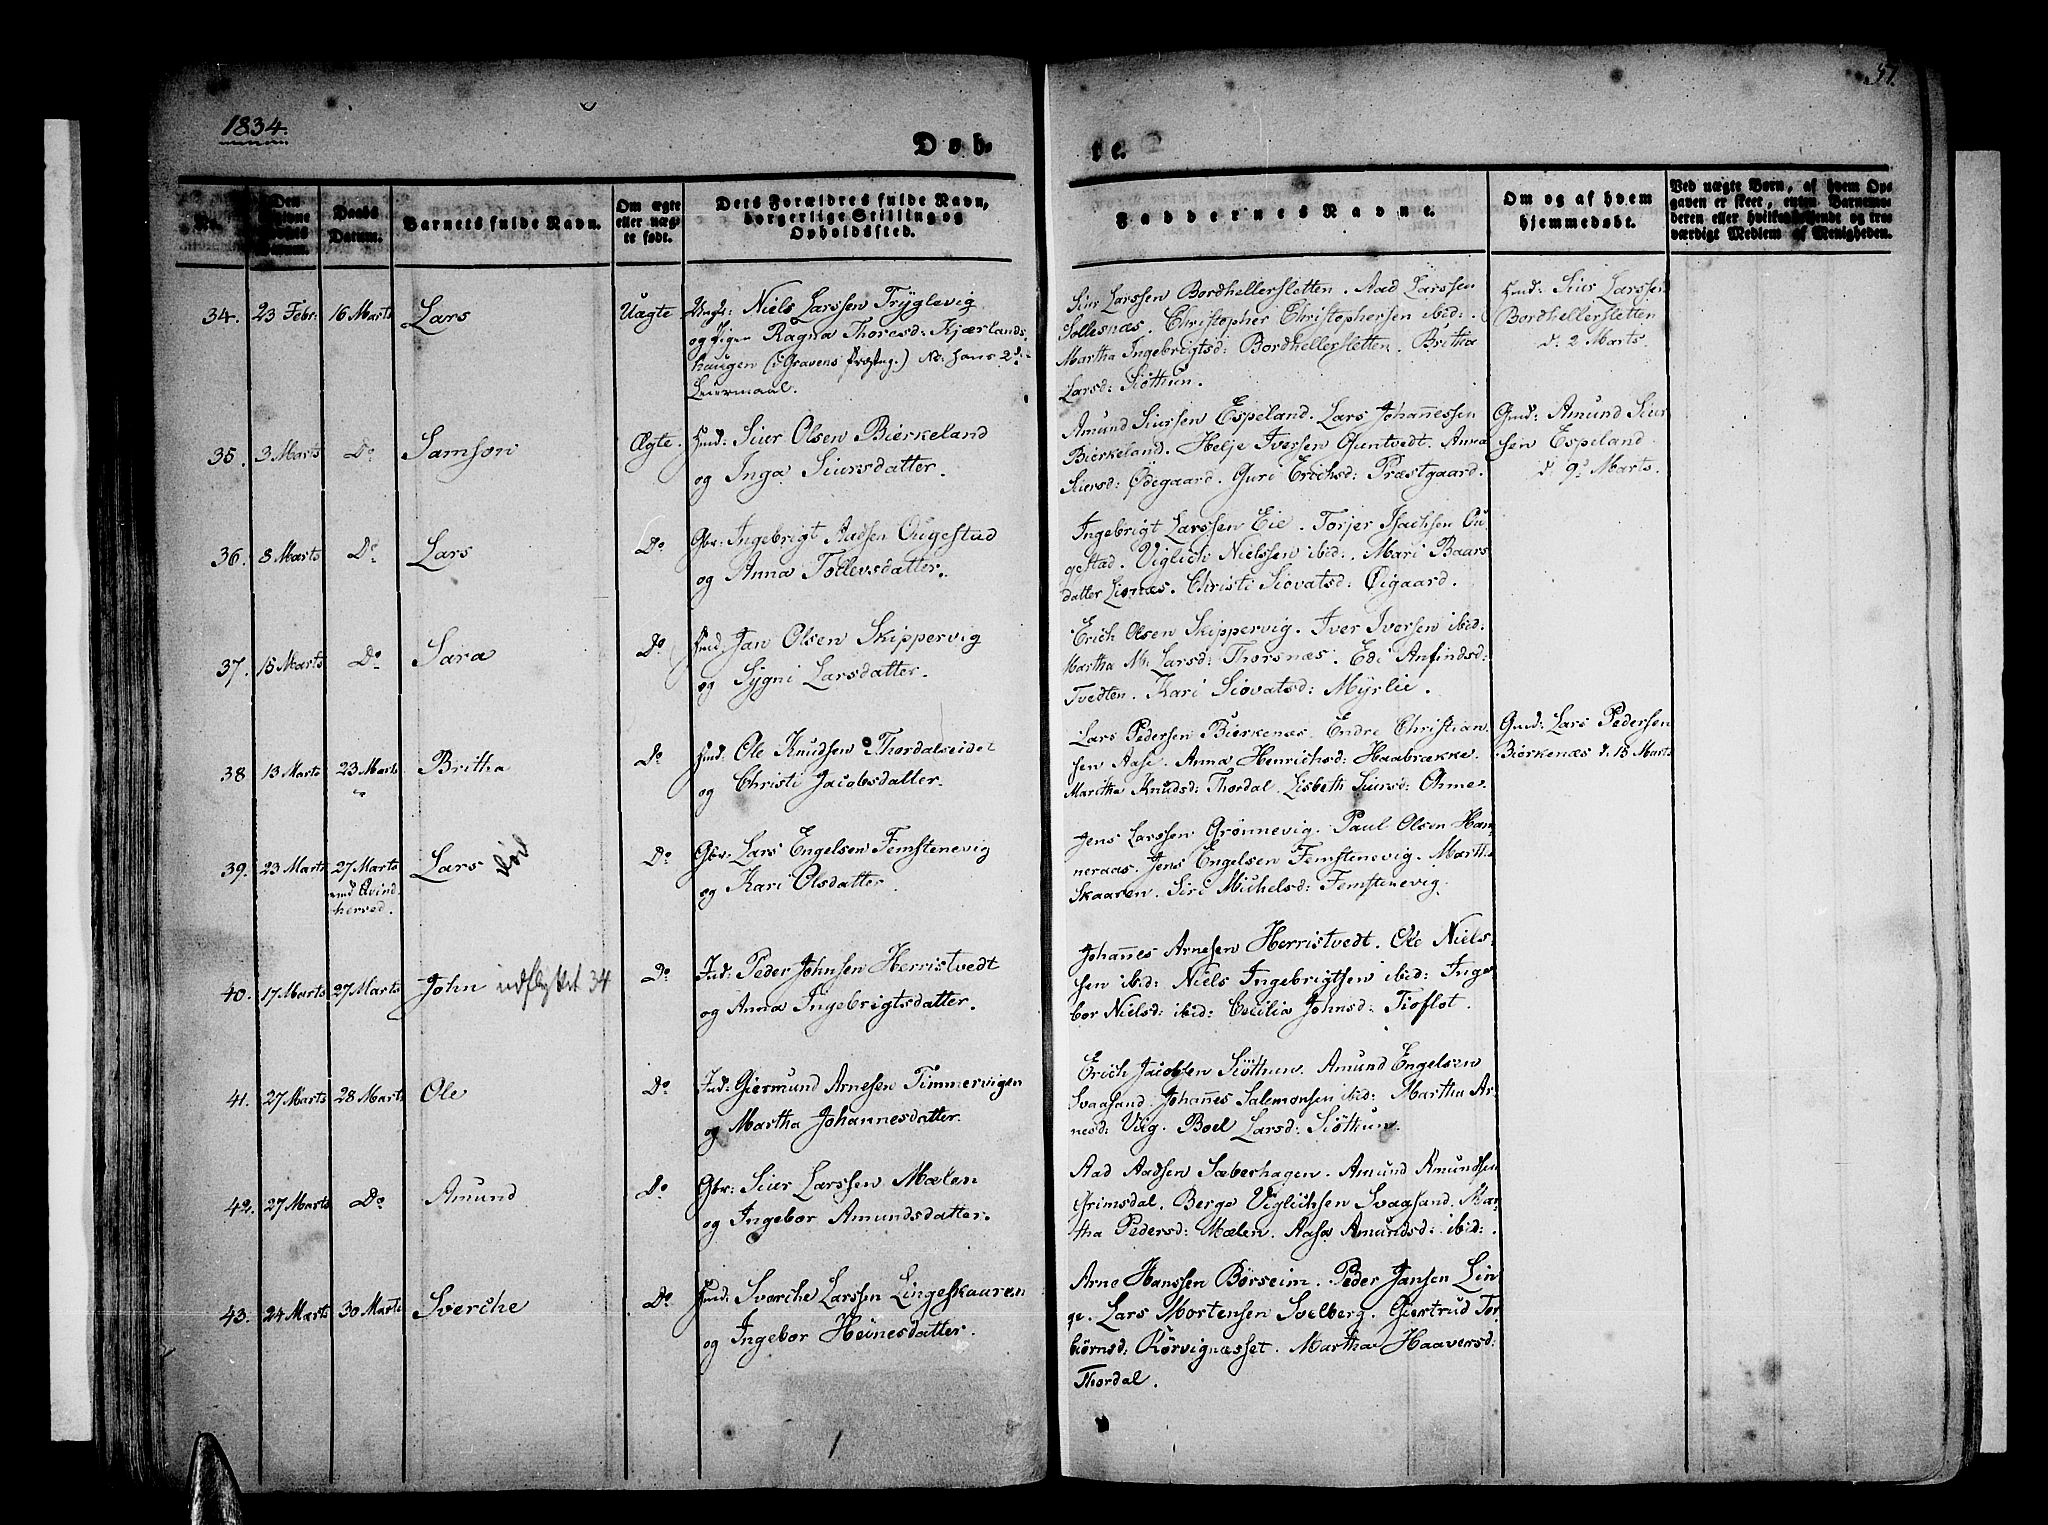 1834.
37.
Døb-
te.
No.
Den
Fødsels
Datum.
Daabs
Datum.
Barnets fulde Navn.
Om ægte
eller uæg-
te født.
Dets Forældres fulde Navn,
borgerlige Stilling og
Opholdssted.
Faddernes Navne.
Om og af hvem
hjemmedøbt.
Ved uægte Børn, af hvem Op-
gaven er skeet, enten Barnemo-
deren eller hvilken og tro-
værdigt Medlem af Menigheden.
34. 23 Febr: 16 Marts Lars Uægte Ungk: Niels Larssen Tryglevig
og Pigen Ragna Thoresd: Kjærlands
haugen (i Gravens Præsteg.) NB: hans 2d
Leiermaal.
Siur Larssen Bordhellersletten. Aad Larssen
Sollesnæs. Christopher Christophersen ibid:.
Martha Ingebrigtsd: Bordhellersletten. Britha
Larsd: Siøthun.
Hmd: Siur Larssen
Bordhellersletten
d. 2 Marts.
35. 3 Marts Do Samson Ægte. Hmd: Siur Olsen Bierkeland
og Inga Siursdatter.
Amund Siursen Espeland. Lars Johannessen
Bierkeland. Helje Iversen Qvntvedt. Anna
Siursd: Ødegaard. Guri Erichsd: Præstgaard.
Gmd: Amund Siur
sen Espeland
d: 9d Marts.
36. 8 Marts Do Lars Do Gbr: Ingebrigt Aadsen Ougestad
og Anna Tollevsdatter.
Ingebrigt Larssen Eie. Torjer Isachsen Ou
gestad. Viglich Nielssen ibid:. Mari Baars
datter Lionæs. Christi Siovatsd: Øigaard.
37. 15 Marts Do Sara Do Hmd: Jan Olsen Skippervig
og Sygni Larsdatter.
Erich Olsen Skippervig. Iver Iversen ibid:
Martha M: Larsd: Thorsnæs. Edi Anfindsd:
Tvedten. Kari Siovatsd: Myrlie.
38 13 Marts 23 Marts Britha Do Hmd: Ole Knudsen Thordalseidet
og Christi Jacobsdatter.
Lars Pedersen Bierkenæs. Endre Christian
sen Aase. Anna Henrichsd: Haabrække.
Maritha Knudsd: Thordal. Lisbeth Siursd: Ohme.
Gmd: Lars Pedersen
Bierkenæs d. 15 Marts
39. 23 Marts 27 Marts
ved Qvind
herred.
Lars død Do Gbr: Lars Engelsen Femstenevig
og Kari Olsdatter.
Jens Larssen Grønnevig. Paul Olsen Ham
neraas. Jens Engelsen Femstenevig. Marth:
Skaaren. Siri Michelsd: Femstenevig.
40. 17 Marts 27 Marts John indflyttet 34 Do Ind: Peder Johnsen Herristvedt
og Anna Ingebrigtsdatter.
Johannes Arnesen Herristvedt. Ole Niels-
sen ibid: Niels Ingebrigtsen ibid: Inge
bor Nielsd: ibid: Cecilia Johnsd: Tioflot.
41. 27 Marts 28 Marts Ole Do Ind: Giermund Arnesen Timmervigen
og Martha Johannesdatter.
Erich Jacobsen Siøthun. Amund Engelsen
Svaasand. Johannes Salemonsen ibid: Martha Ar-
nesd: Viig. Boel Larsd: Siøthun.
42. 27 Marts Do Amund Do Gbr: Siur Larssen Mælen
og Ingebor Amundsdatter.
Aad Aadsen Sæberhagen. Amund Amundsen
Grimsdal. Berge Viglichsen Svaasand. Mar-
tha Pedersd: Mælen. Aasa Amundsd: ibid:.
43. 24 Marts 30 Marts Sverche Do Hmd: Sverche Larssen Lingeskaaren
og Ingebor Heinesdatter.
Arne Hanssen Børseim. Peder Jansen Lin
ge. Lars Mortensen Solberg. Giertrud Tor
biørnsd: Rørvignæsset. Martha Haaversd:
Thordal.